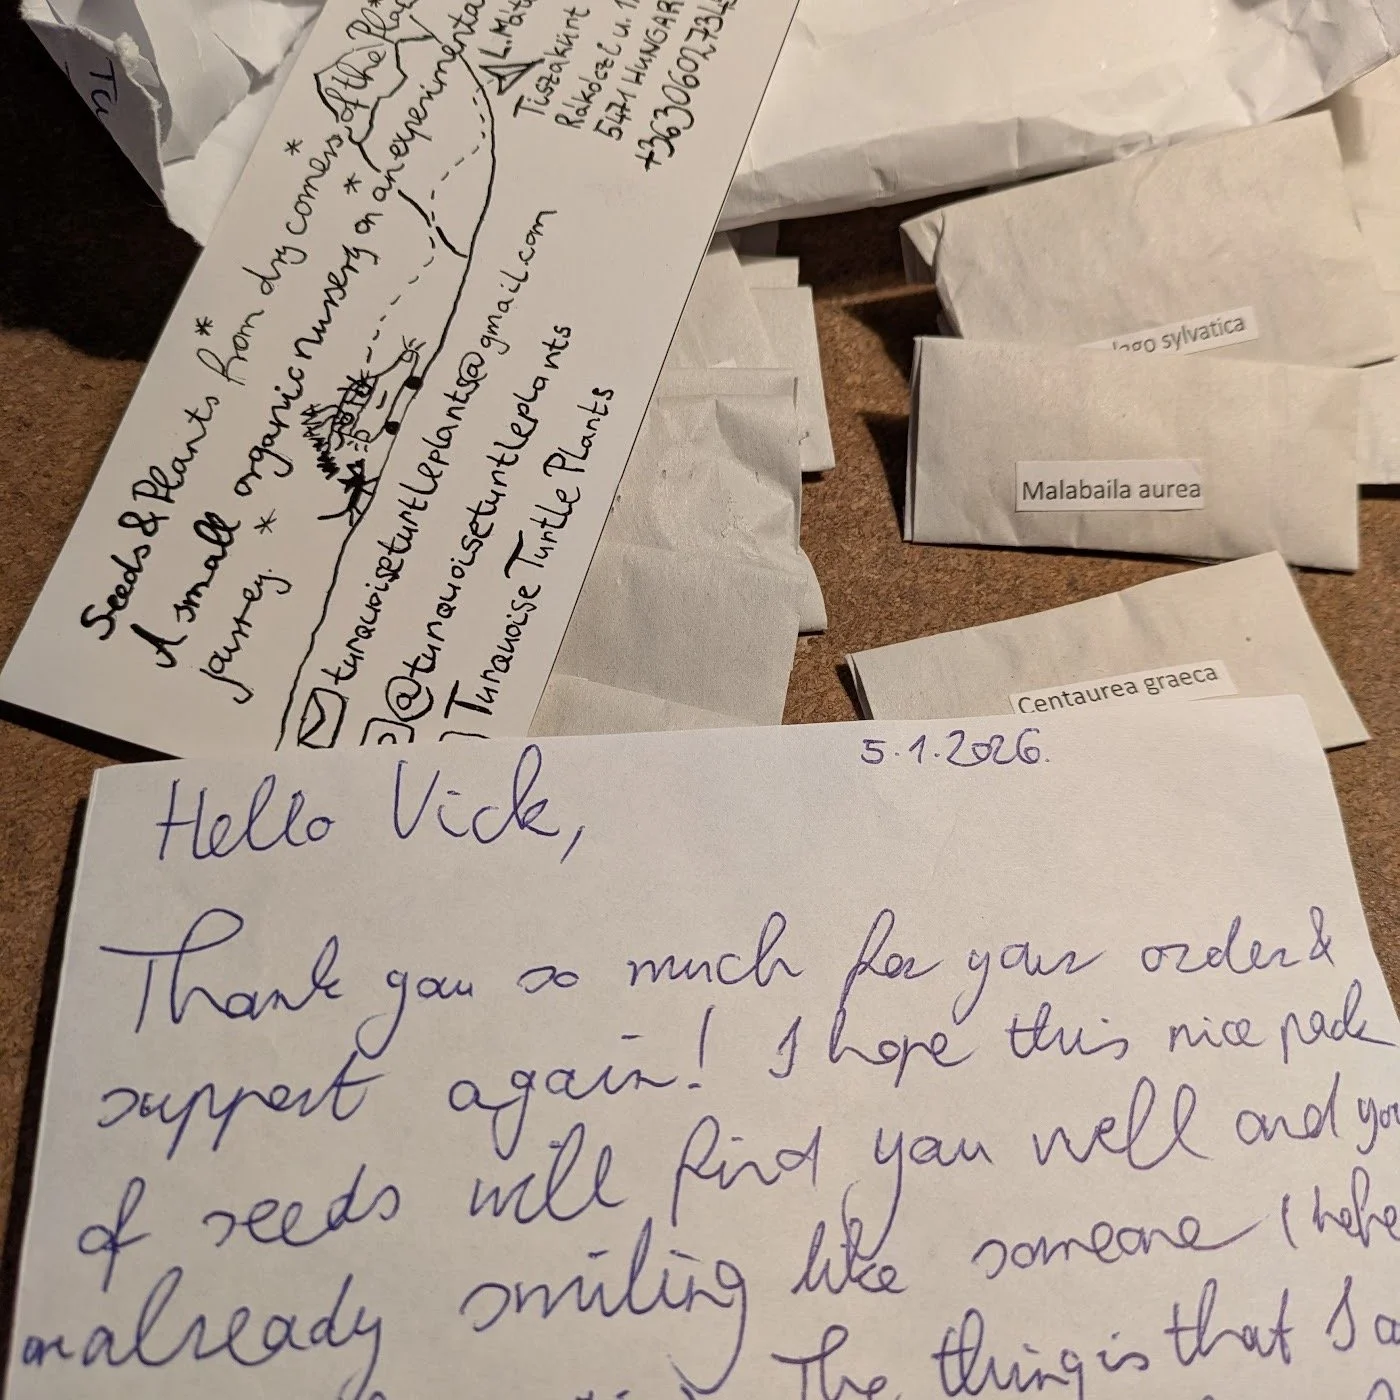 Tu
Seeds & Plants * from dry corners * of the Pla
A small organic nursery * on an experimental
journey. *
L. Mát
Tiszakürt
Rákóczi u. 1
5471 HUNGAR
+36306027345
turquoiseturtleplants@gmail.com
@turquoiseturtleplants
Turquoise Turtle Plants
lago sylvatica
Malabaila aurea
Centaurea graeca
5.1.2026.
Hello Vick,
Thank you so much for your order &
support again! I hope this nice pack
of seeds will find you well and you
already smiling like someone
The thing is that I a